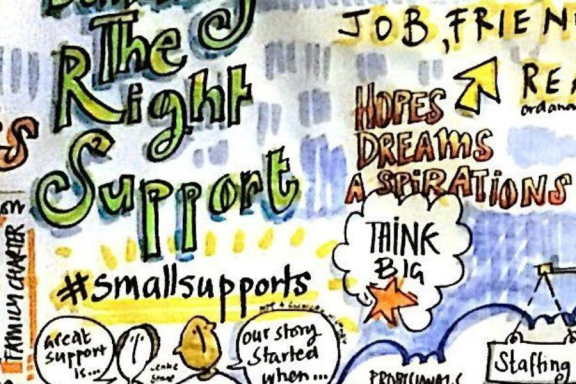 The
Right
Support
#smallsupports
great
support
is...
our story
started
when...
FAMILY CHARTER
JOB, FRIEN
HOPES
DREAMS
ASPIRATIONS
THINK
BIG
Staffing